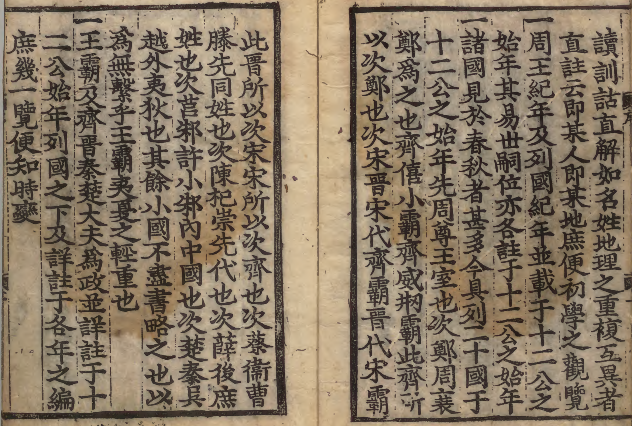 讀訓詁直解如名姓地理之重複互異者
直註云即某人即某地庶便初學之觀覽
一周王紀年及列國紀年並載于十二公之
始年其易世嗣位亦各註于十二公之始年
一諸國見於春秋者甚多今具列二十國于
十二公之始年先周尊王室也次鄭周衰
鄭為之也齊僖小霸齊威刱霸此齊所
以次鄭也次宋晉宋代齊霸晉代宋霸
此晉所以次宋宋所以次齊也次蔡衛曹
滕先同姓也次陳杞崇先代也次薛後庶
姓也次莒邾許小邾內中國也次楚秦吳
越外夷狄也其餘小國不盡書略之也以
為無繫乎王霸夷夏之輕重也
一王霸及齊晉秦楚大夫為政並詳註于十
二公始年列國之下及詳註于各年之編
庶幾一覽便知時變